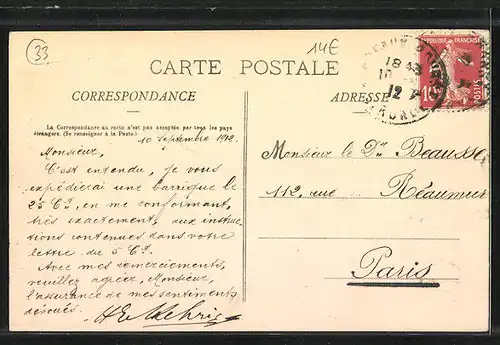 33
14E
CARTE POSTALE
CORRESPONDANCE
ADRESSE
La Correspondance au recto n'est pas acceptée par tous les pays
étrangers. (Se renseigner à la Poste)
10 Septembre 1912.
Monsieur,
C'est entendu, je vous
expédierai une barrique le
25 Ct, en me conformant,
très exactement, aux instruc-
tions contenues dans votre
lettre du 5 Ct.
Avec mes remerciements,
veuillez agréer, Monsieur,
l'assurance de mes sentiments
dévoués.
Monsieur le Dr Beausse
112, rue Réaumur
Paris
REPUBLIQUE FRANÇAISE
10
POSTES
BORDEAUX
18
12
GIRONDE